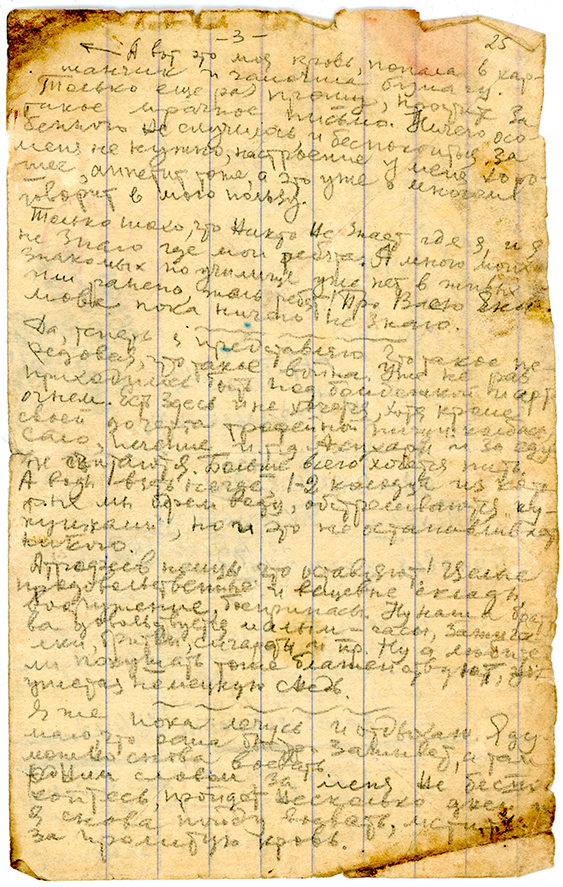 -3- 25
А вот это моя кровь, попала в кар-
манчик и замочила бумагу.
Только еще раз прошу, простите за
такое мрачное письмо. Ничего осо
бенного не случилось и беспокоиться за
меня не нужно, настроение у меня хоро
шее, аппетит тоже, а это уже о многом
говорит в мою пользу.
Только плохо, что никто не знает где я, и я
не знаю где мои ребята. А много моих
знакомых по училищу уже нет в живых
или ранено, жаль ребят! Про Васю
пока ничего не знаю.
Да, теперь я представляю что такое пе-
редовая, что такое война. Уже не раз
приходилось быть под бомбежкой и арт
огнем. Ест здесь и не хочется, хотя кроме
своей до черта трофейной пищи: колбаса,
сало, печение и т.д. А сухари и за еду
не считаются. Больше всего хочется пить.
А воды взять негде, 1-2 колодца из кото
рых мы берем воду, обстреливаются
но и это не останавливает
никого.
А трофеев немцы что оставляют! Целые
продовольственные и вещевые склады,
вооружение, боеприпасы. Ну наша брат
ва довольствуется малым - часы, зажига
лки, бритвы, сигареты и пр. Ну а любите
ли покушать тоже блаженствуют,
уметая немецкую снедь.
Я же пока лечусь и отдыхаю. Жду
мало, что рана быстро заживет, и там
можно снова воевать.
Одним словом за меня не беспо
койтесь, пройдет несколько дней и
я снова пойду воевать, мстить
за пролитую кровь.